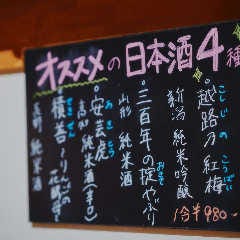 オススメの日本酒4種
越路乃紅梅
こしじの こうばい
新潟 純米吟醸
三百年の掟やぶり
おきて
山形 純米酒
安芸虎
あきとら
高知 純米酒(辛口)
積善
長野 純米酒
1合¥980-